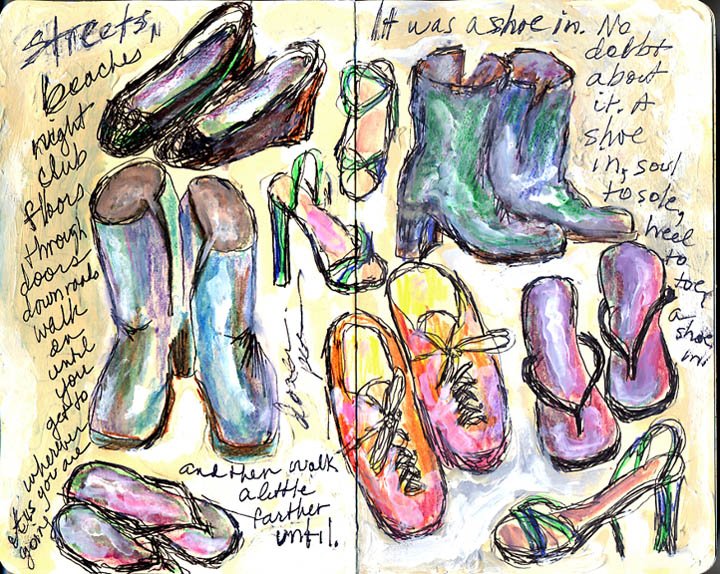 streets,
beaches
night
club
floors
through
doors
down roads
walk
on
until
you
get to
wherever
it is you are
going
and then walk
a little
farther
until.
It was a shoe in. No
doubt
about
it. A
shoe
in, soul
to sole,
heel
to
toe,
a
shoe
in.